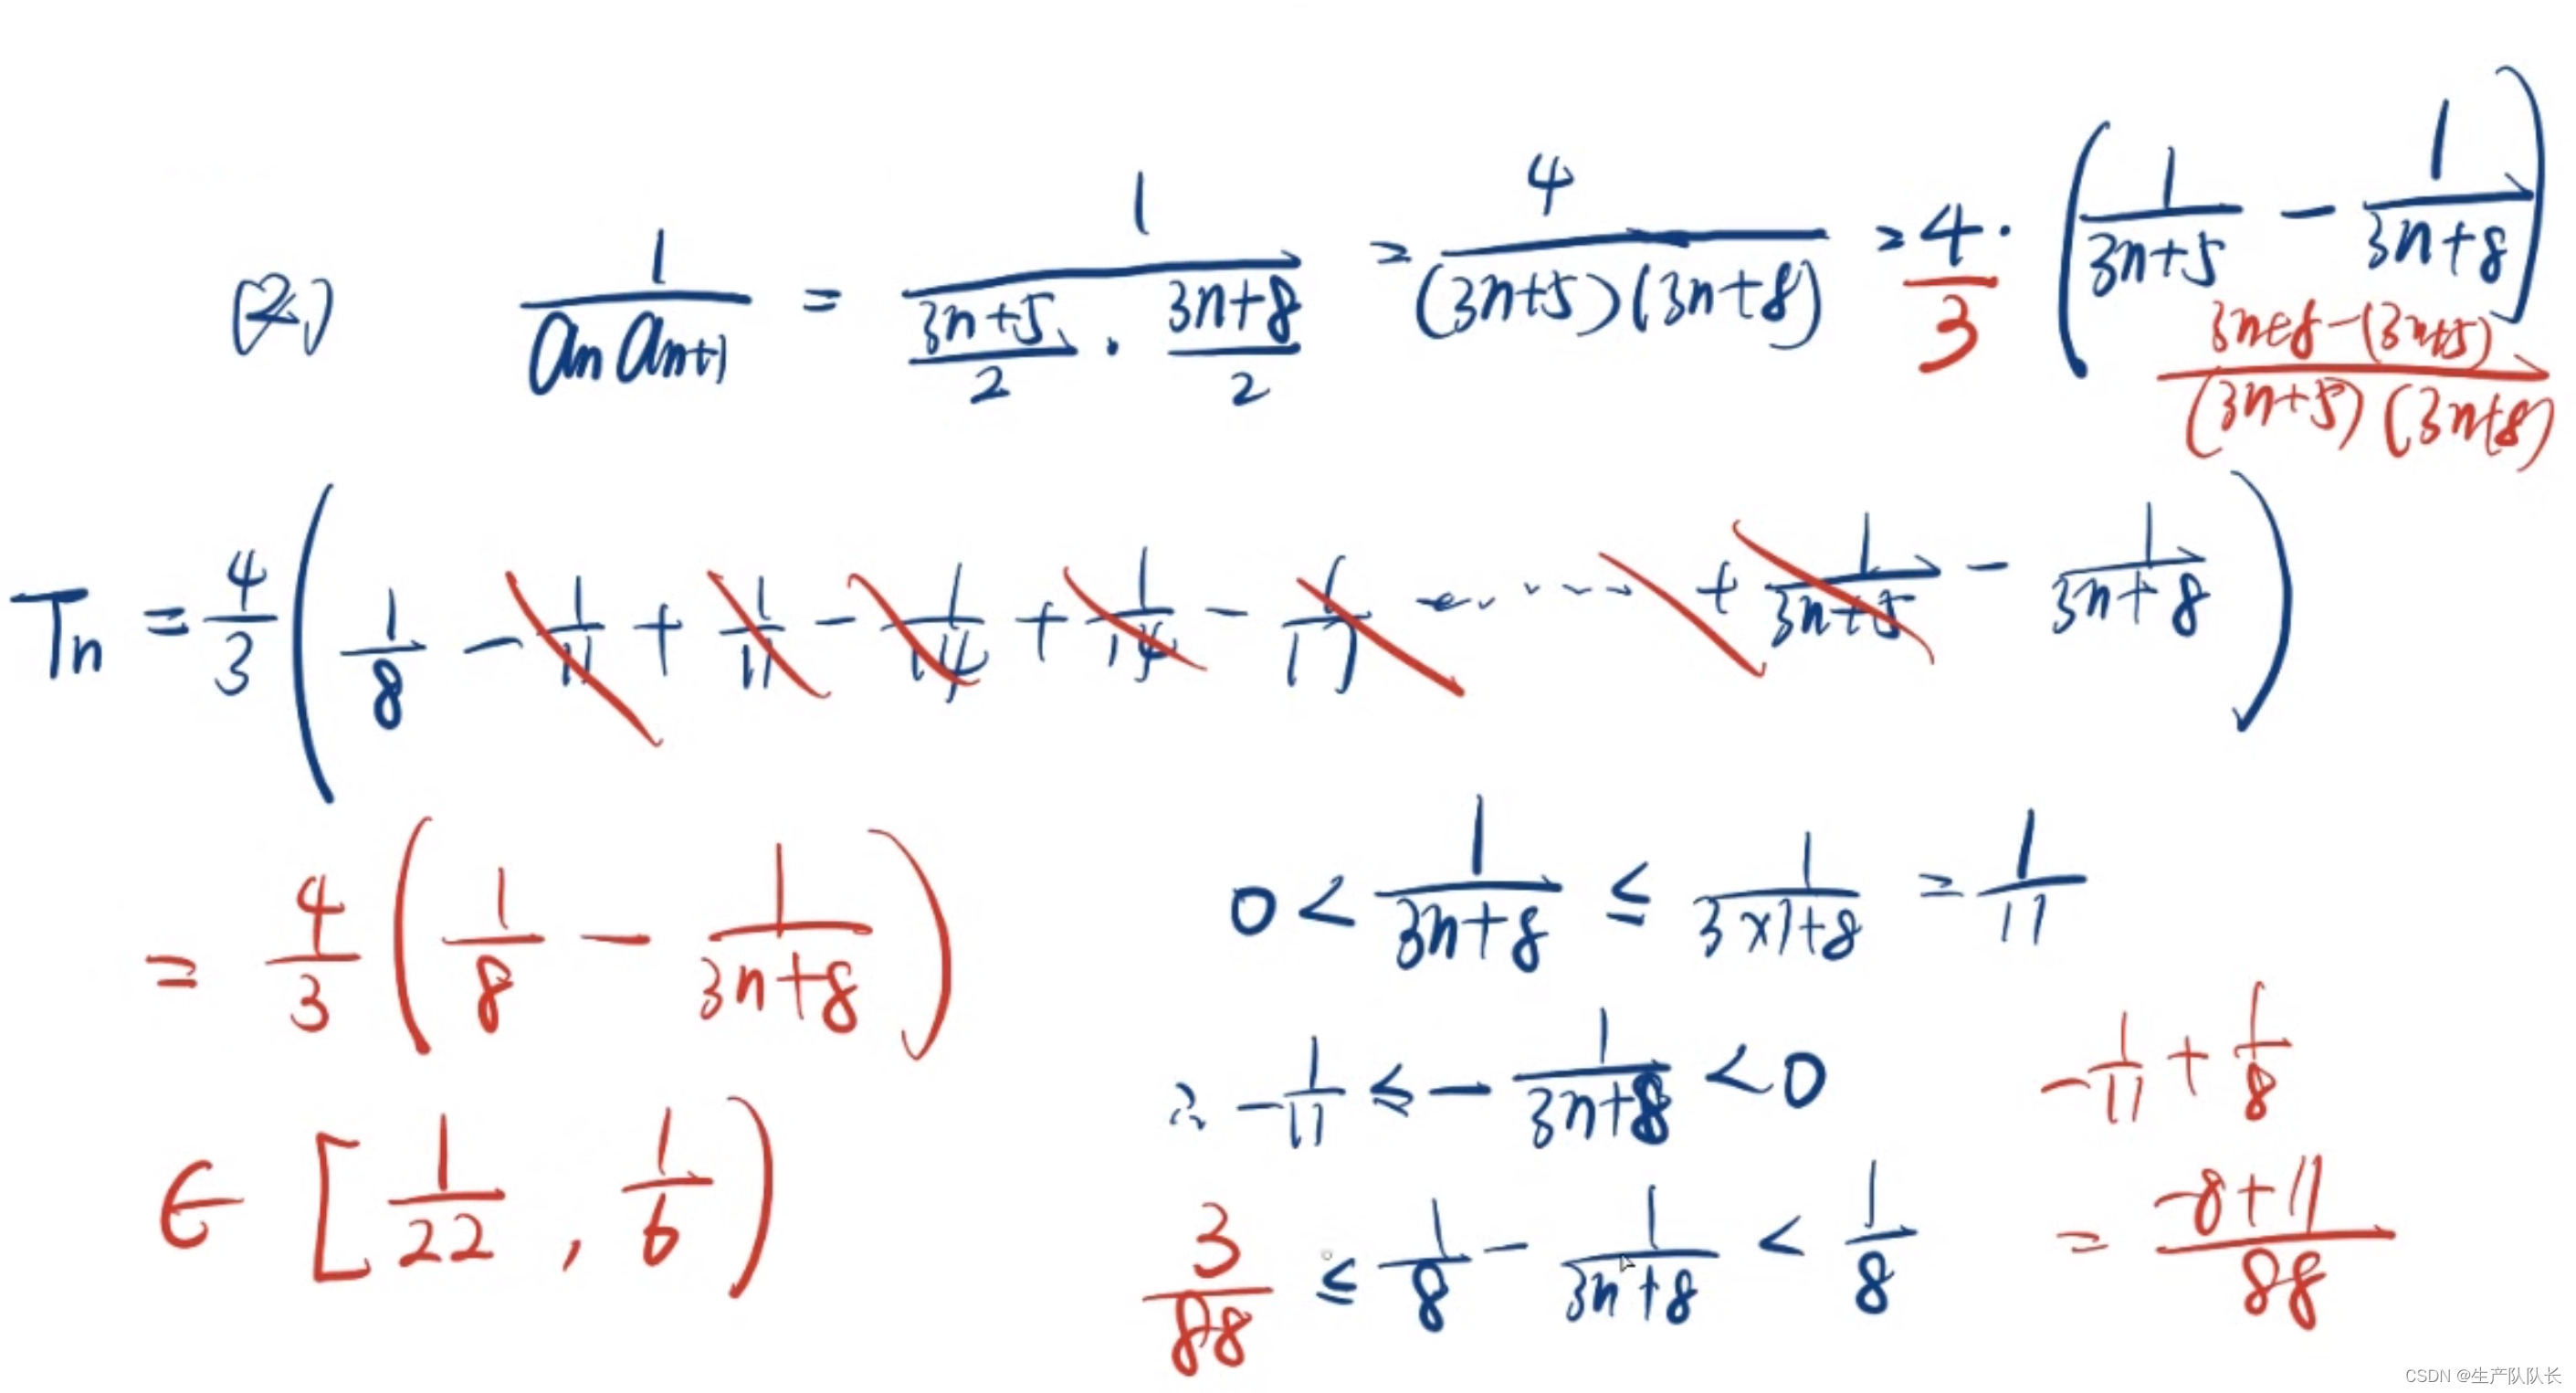 (2) 1/(aₙaₙ₊₁) = 1/((3n+5)/2 · (3n+8)/2) = 4/((3n+5)(3n+8)) = 4/3 · (1/(3n+5) − 1/(3n+8))
(3n+8−(3n+5))/((3n+5)(3n+8))
Tₙ = 4/3 (1/8 − 1/11 + 1/11 − 1/14 + 1/14 − 1/17 ...... + 1/(3n+5) − 1/(3n+8))
= 4/3 (1/8 − 1/(3n+8))
∈ [1/22 , 1/6)
0 < 1/(3n+8) ≤ 1/(3×1+8) = 1/11
∴ −1/11 ≤ − 1/(3n+8) < 0
3/88 ≤ 1/8 − 1/(3n+8) < 1/8
−1/11 + 1/8
= (−8+11)/88
CSDN @生产队队长